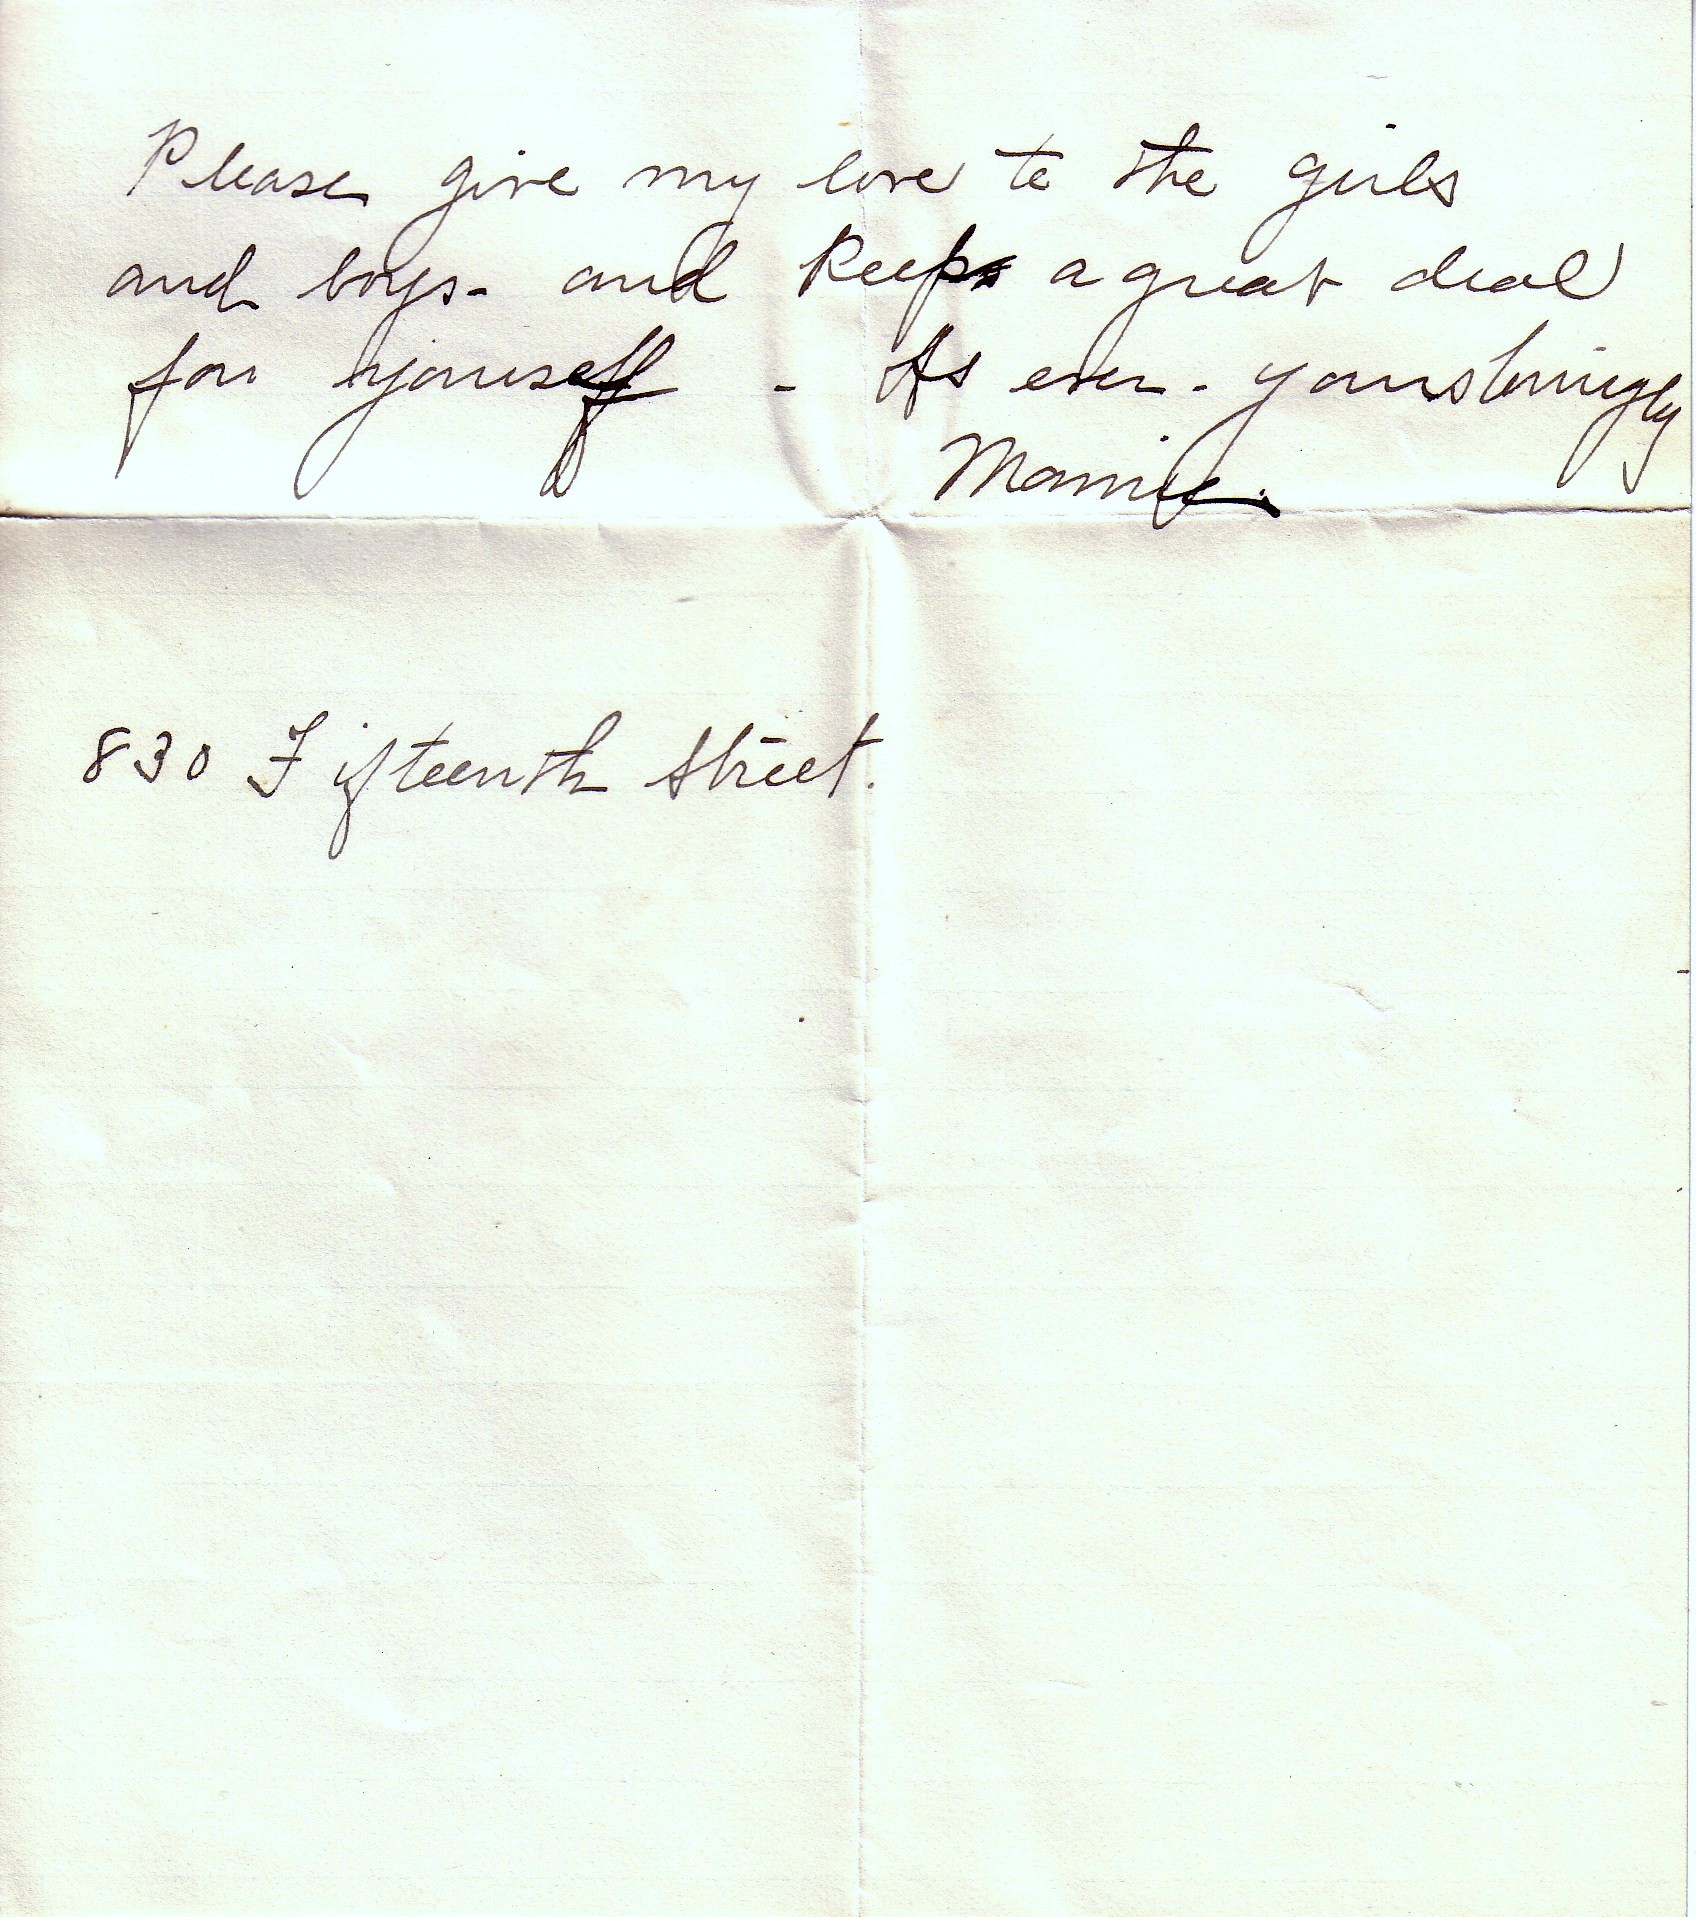 Please give my love to the girls
and boys - and keep a great deal
for yourself - As ever - yours lovingly
Mamie.
830 Fifteenth Street.